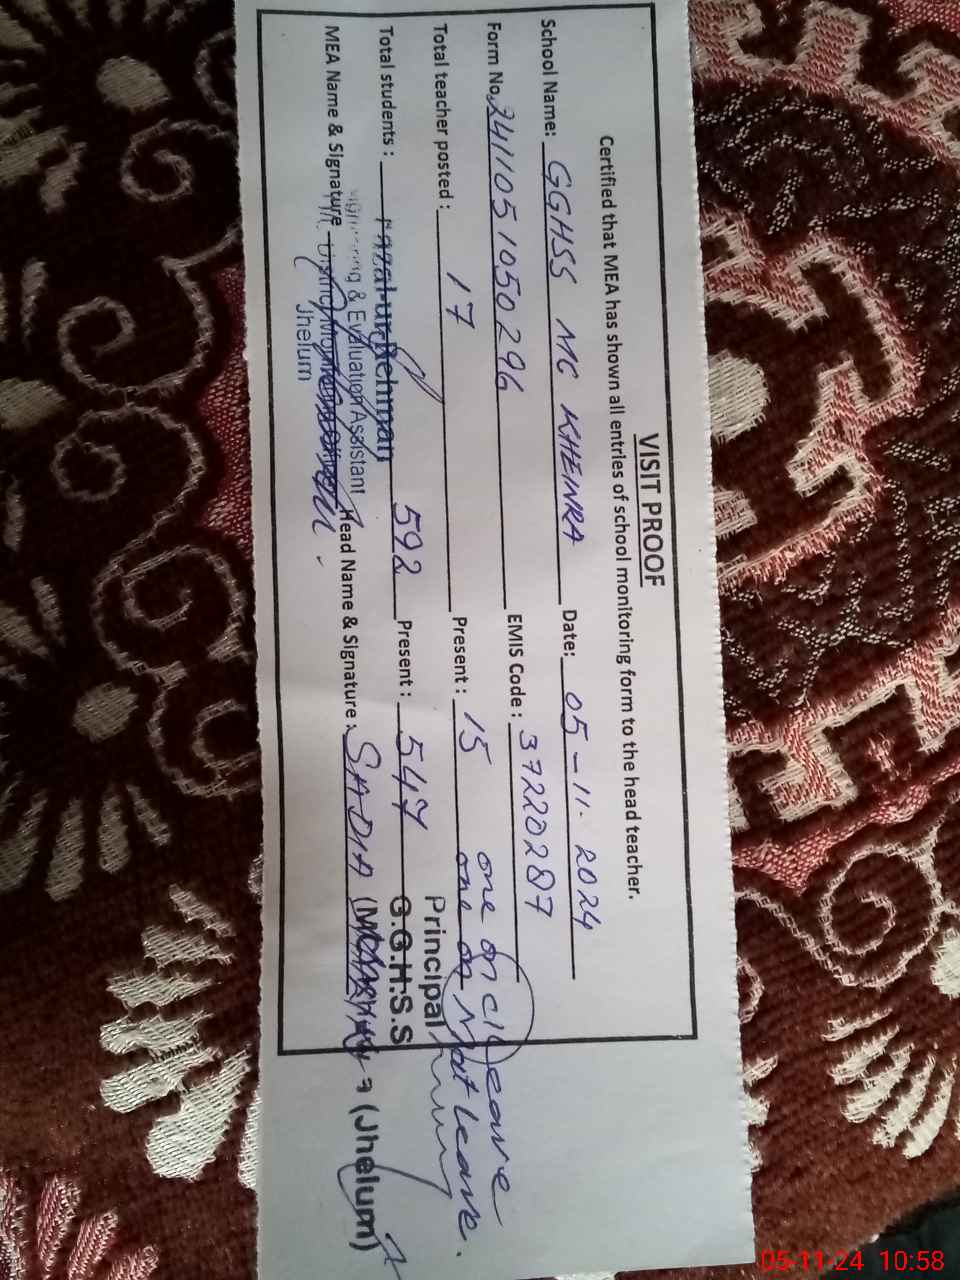 VISIT PROOF
Certified that MEA has shown all entries of school monitoring form to the head teacher.
School Name: GGHSS MC KHEINRA Date: 05-11-2024
Form No. 2411051050296 EMIS Code: 37220287
Total teacher posted: 17 Present: 15 one on C/Leave
one on Mat Leave.
Principal
Total students: 592 Present: 547 G.G.H.S.S
Fazal-ur-Rehman
& Evaluation Assistant
MEA Name & Signature Head Name & Signature: SADIA (Jhelum)
Jhelum
05-11-24 10:58